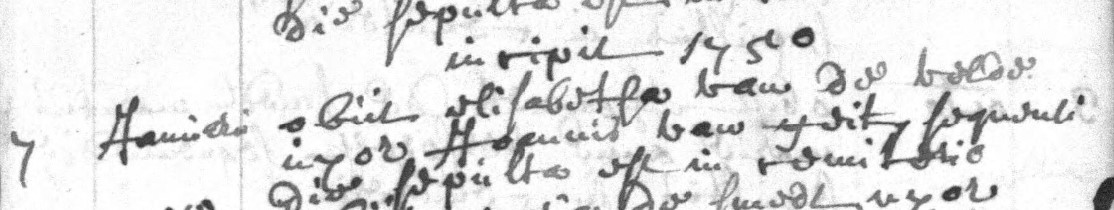 die sepulta est in
incipit 1750
7 Januarii obiit elisabetha van de velde
uxor Joannis van sequenti
die sepulta est in cemiterio
de smedt uxor